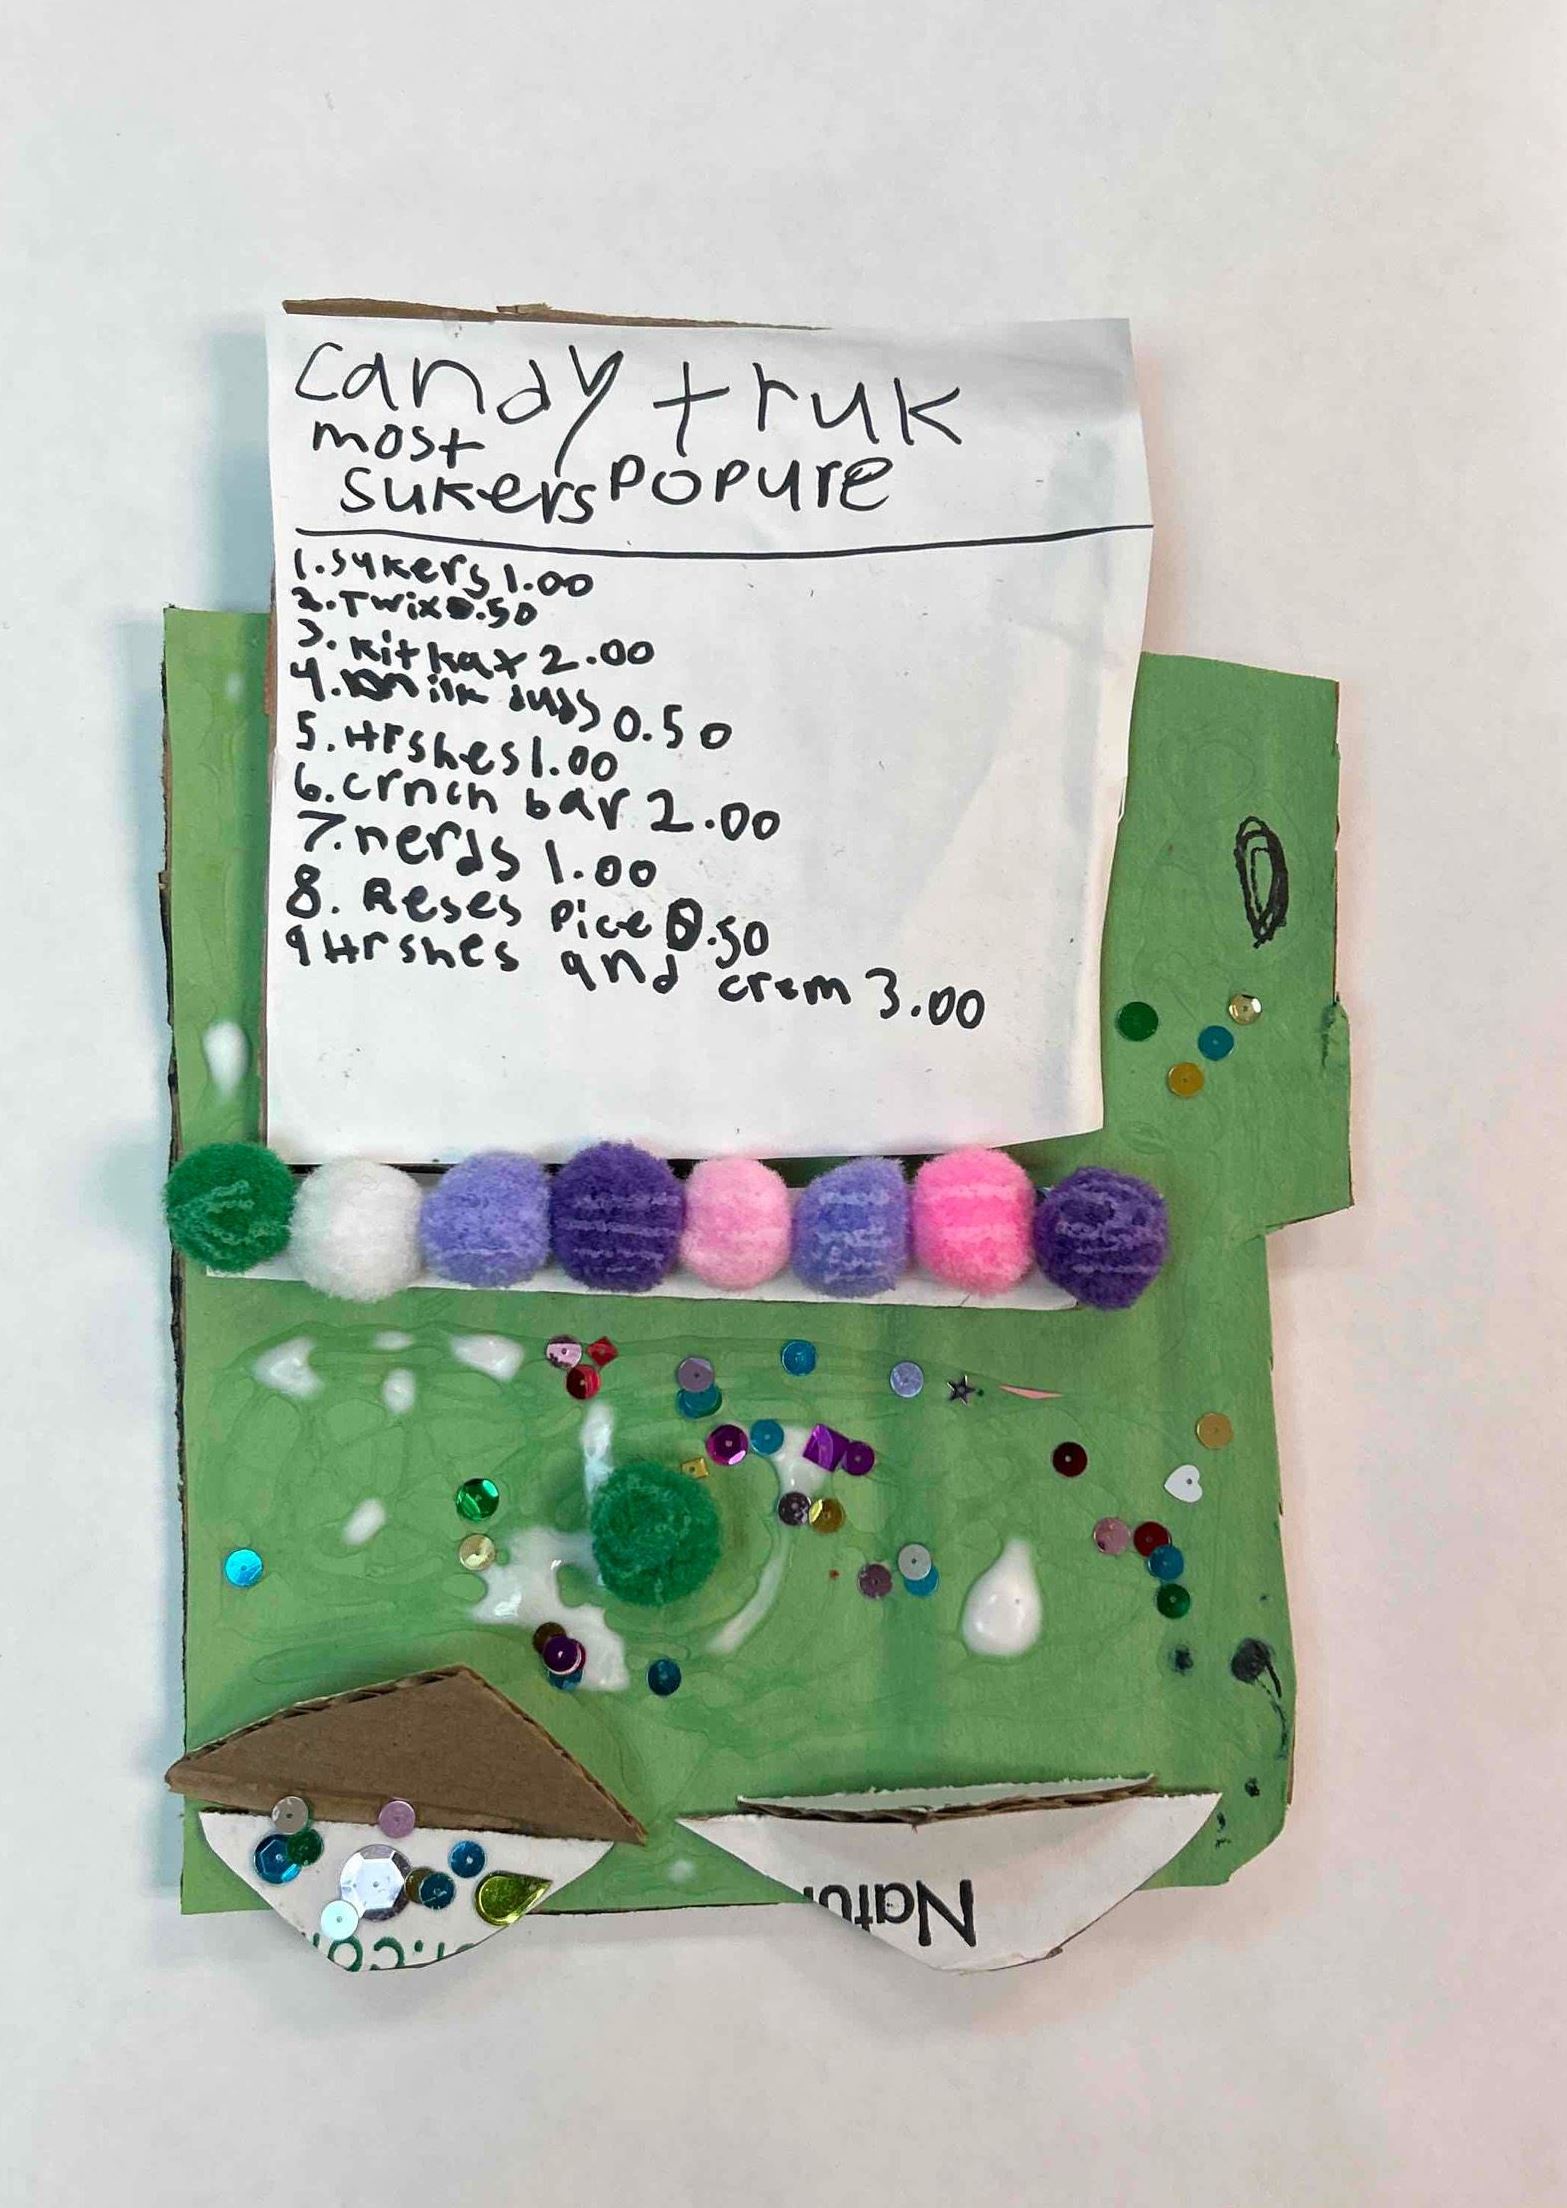 candy truk
most
sukers popure
1. sukers 1.00
2. Twix 0.50
3. kit kat 2.00
4. milk duds 0.50
5. Hrshes 1.00
6. crnch bar 2.00
7. nerds 1.00
8. Reses pice 0.50
9 Hrshes and crem 3.00
Natu
r.co